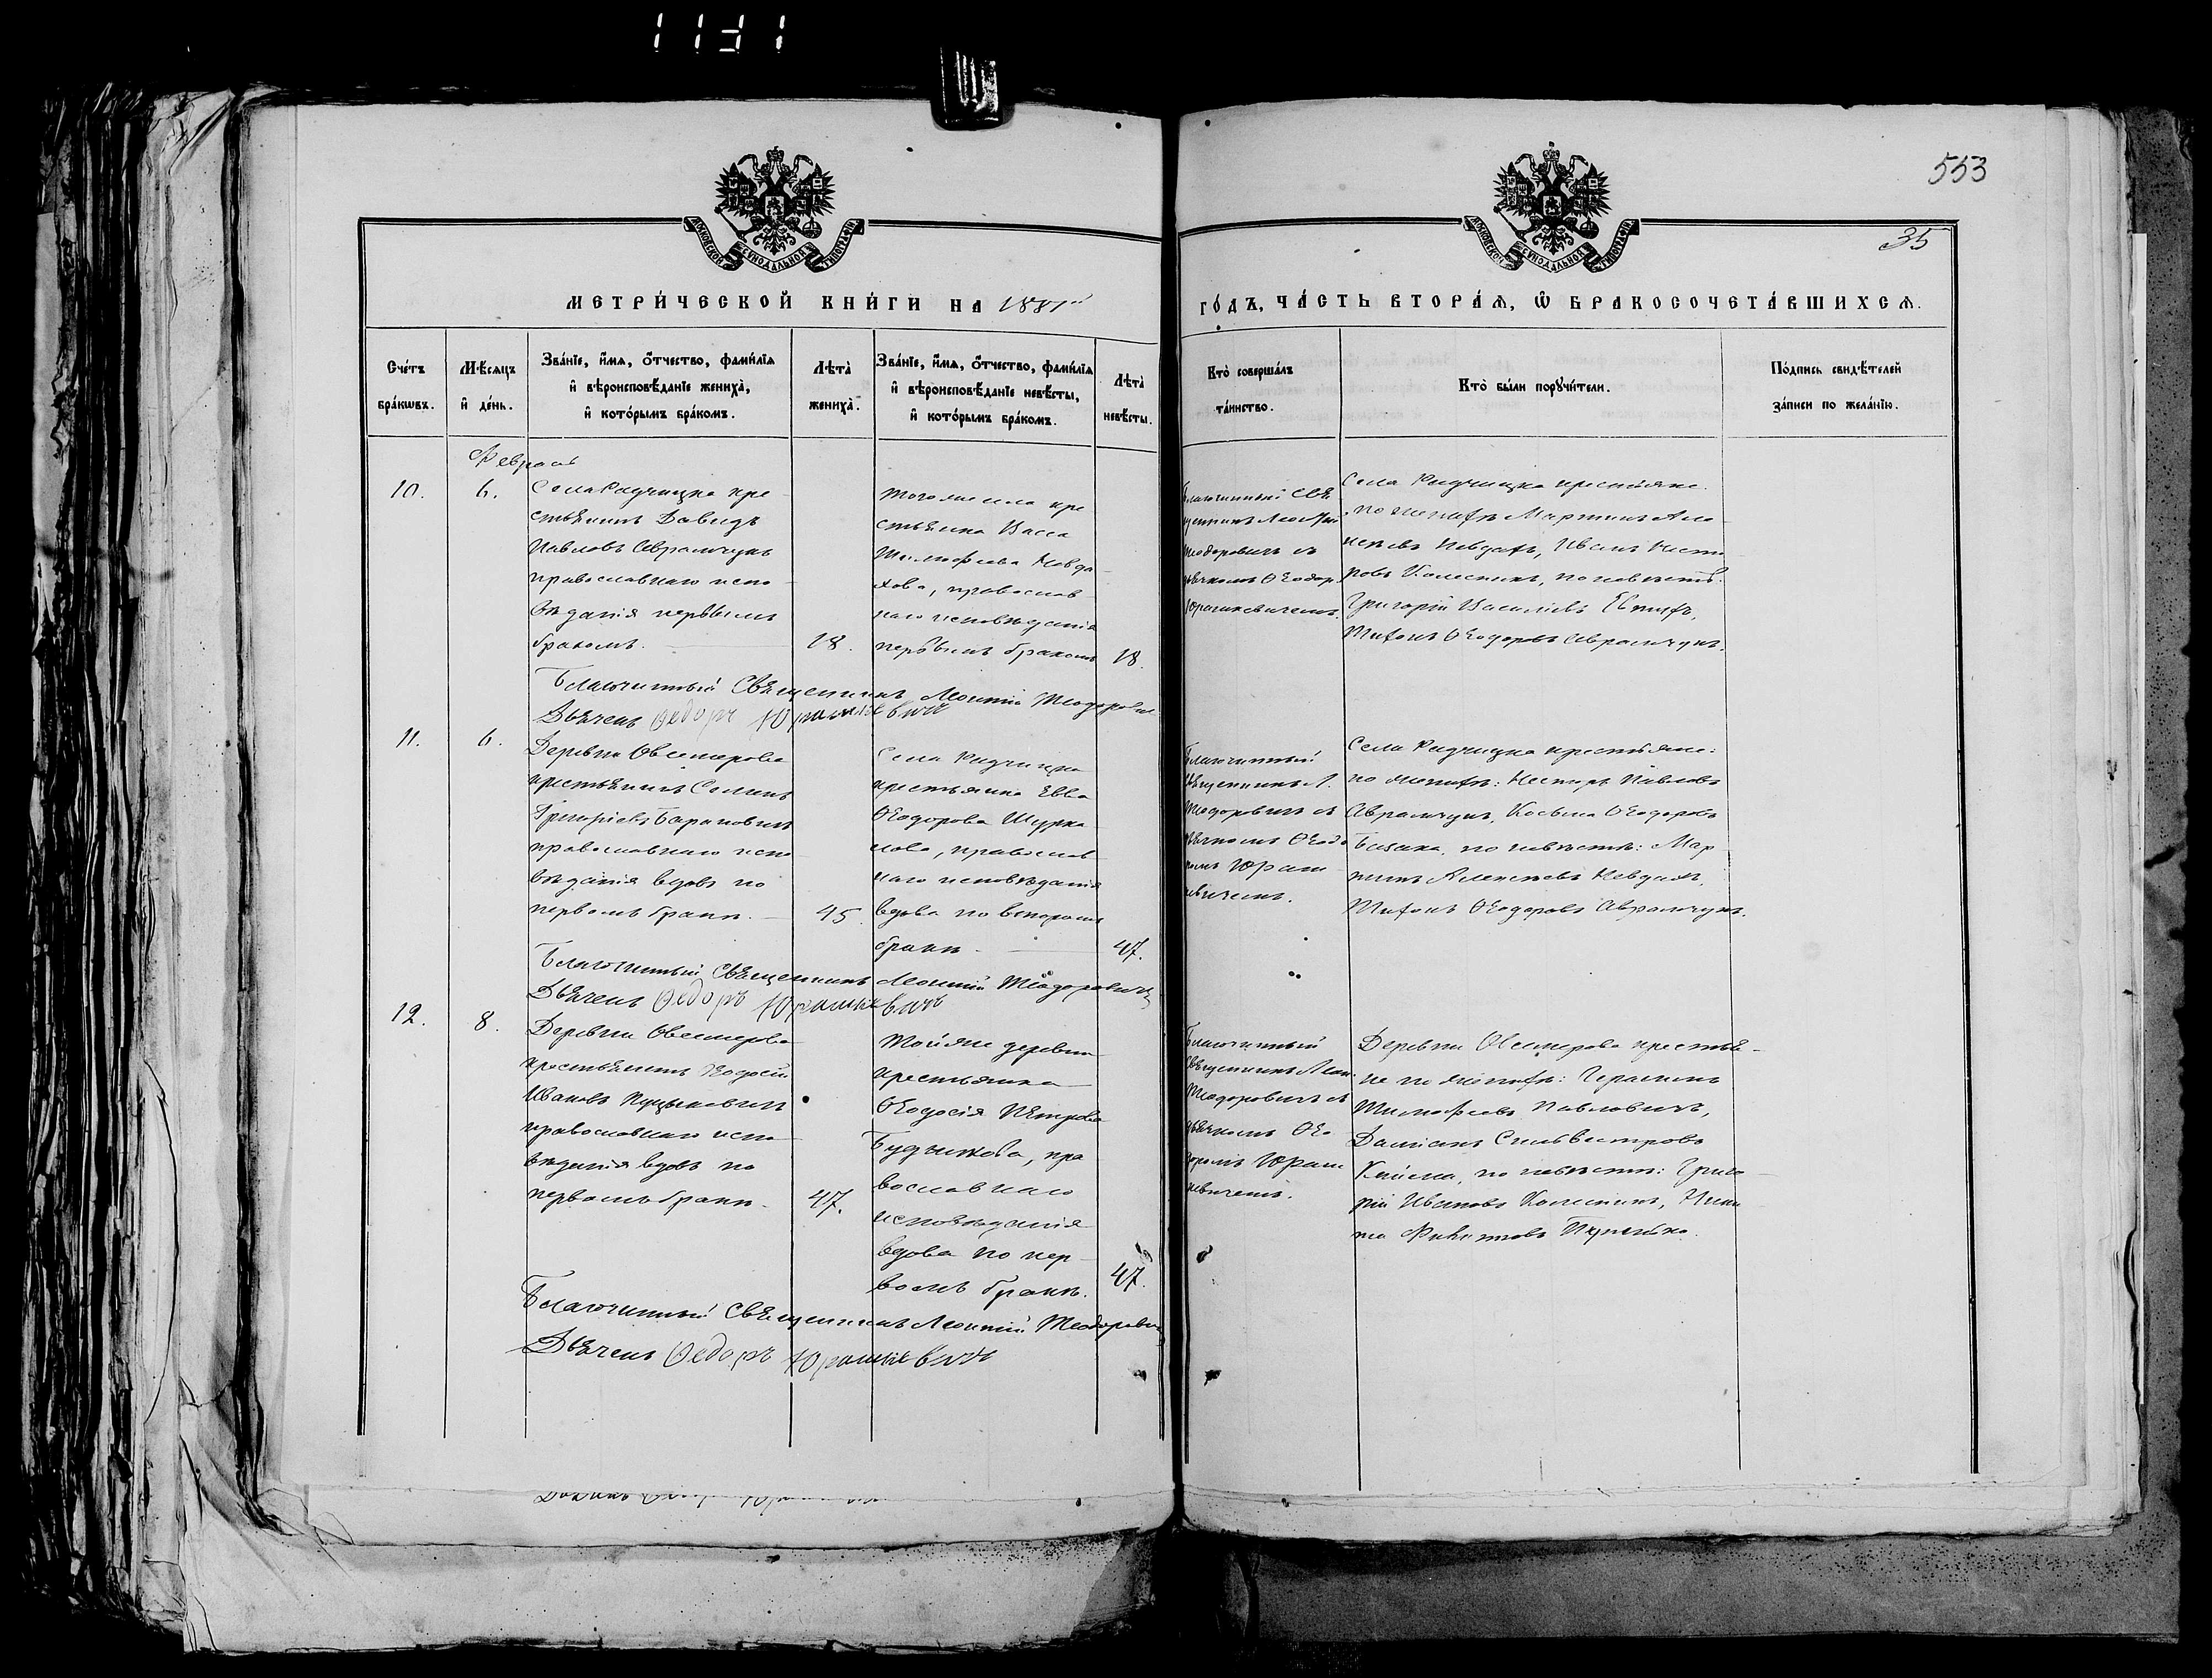 553
35
МОСКОВСКОЙ СѴНОДАЛЬНОЙ ТИПОГРАФІИ
МОСКОВСКОЙ СѴНОДАЛЬНОЙ ТИПОГРАФІИ
МЕТРИ́ЧЕСКОЙ КНИ́ГИ НА 1881й
ГО́ДЪ, ЧА́СТЬ ВТОРА́Ѧ, Ѿ БРАКОСОЧЕТА́ВШИХСѦ.
Сче́тъ бра́кѡвъ.
Мѣ́сѧцъ и҆ де́нь.
Зва́нїе, и҆́мѧ, ѻ҆́тчество, фами́лїѧ
и҆ вѣроисповѣ́данїе жениха̀,
и҆ кото́рымъ бра́комъ.
Лѣта̀ жениха̀.
Зва́нїе, и҆́мѧ, ѻ҆́тчество, фами́лїѧ
и҆ вѣроисповѣ́данїе невѣ́сты,
и҆ кото́рымъ бра́комъ.
Лѣта̀ невѣ́сты.
Кто̀ соверша́лъ
та́инство.
Кто̀ бы́ли порꙋчи́тели.
По́дпись свидѣ́телей
за́писи по жела́нїю.
Февраль
10.
6.
Села Радчицка кре
стьянинъ Давидъ
Павловъ Аврамчукъ
православнаго испо
вѣданія первымъ
бракомъ.
18.
Тогоже села кре
стьянка Васса
Тимофеева Невда
хова, православ
наго исповѣданія
первымъ бракомъ
18.
Благочинный Свя
щенникъ Леонтій
Теодоровичъ съ
дьячкомъ Ѳеодор.
Юрашкевичемъ.
Села Радчицка крестьяне:
по женихѣ Мартинъ Але
ксѣевъ Невдахъ, Иванъ Несте
ровъ Колесникъ, по невѣстѣ:
Григорій Василіевъ
Тихонъ Ѳеодоровъ Аврамчукъ.
Благочинный Священникъ Леонтій Теодорович
Дьячекъ Ѳедоръ Юрашкевичъ
11.
6.
Деревни Овсемерова
крестьянинъ Семенъ
Григоріевъ Барановичъ
православнаго испо
вѣданія вдовъ по
первомъ бракѣ.
45.
Села Радчицка
крестьянка Евва
Ѳеодорова Шурка
лова, православ
наго исповѣданія
вдова по второмъ
бракѣ.
47.
Благочинный
Священникъ Л.
Теодоровичъ съ
дьячкомъ Ѳеодо
ромъ Юраш
кевичемъ.
Села Радчицка крестьяне:
по женихѣ: Нестеръ Павловъ
Аврамчукъ, Косьма Ѳеодоровъ
по невѣстѣ: Мар
тинъ Алексѣевъ Невдахъ,
Тихонъ Ѳеодоровъ Аврамчукъ.
Благочинный Священникъ Леонтій Теодоровичъ
Дьячекъ Ѳедоръ Юрашкевичъ
12.
8.
Деревни Овсемерова
крестьянинъ Ѳеодосій
Ивановъ
православнаго испо
вѣданія вдовъ по
первомъ бракѣ.
47.
Тойже деревни
крестьянка
Ѳеодосія Петрова
пра
вославнаго
исповѣданія
вдова по пер
вомъ бракѣ.
47.
Благочинный
Священникъ Леон.
Теодоровичъ съ
дьячкомъ Ѳео
доромъ Юраш
кевичемъ.
Деревни Овсемерова крестья
не по женихѣ: Герасимъ
Тимофеевъ Павловичъ,
Даміанъ Сильвестровъ
по невѣстѣ: Григо
рій Ивановъ Колесникъ, Ники
та
Благочинный Священникъ Леонтій Теодорович
Дьячекъ Ѳедоръ Юрашкевичъ